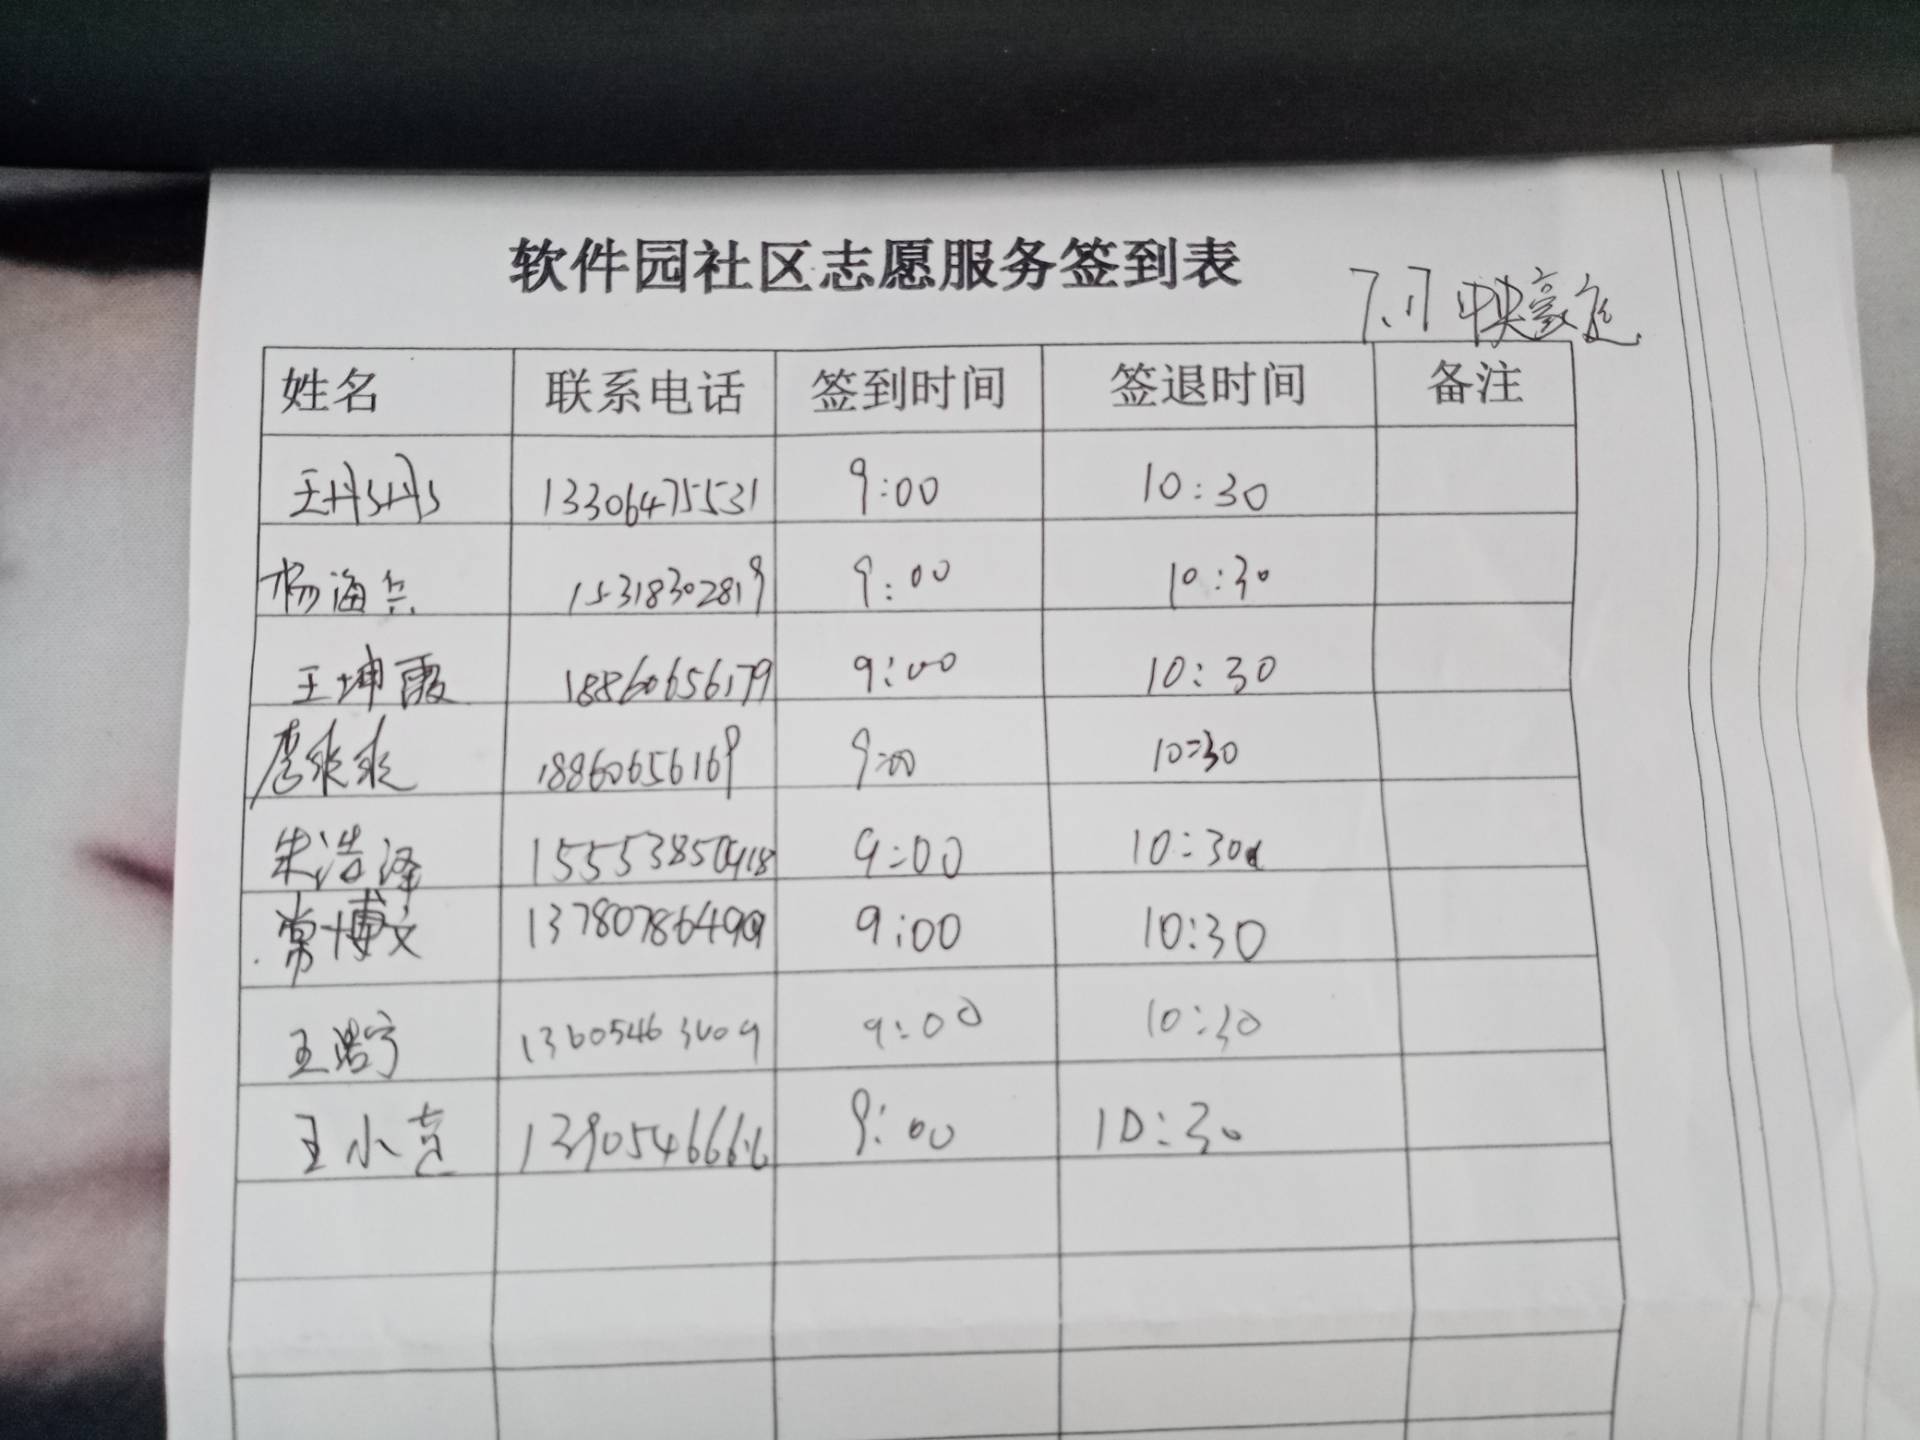 软件园社区志愿服务签到表
7.17 中央豪庭
姓名 联系电话 签到时间 签退时间 备注
王丹丹 13306475531 9:00 10:30
杨海兵 15318302819 9:00 10:30
王坤霞 18860656179 9:00 10:30
李爽爽 18860656169 9:00 10:30
朱浩泽 15553850418 9:00 10:30
常博文 13780786499 9:00 10:30
王浩宁 13605463009 9:00 10:30
王小 13905466616 9:00 10:30